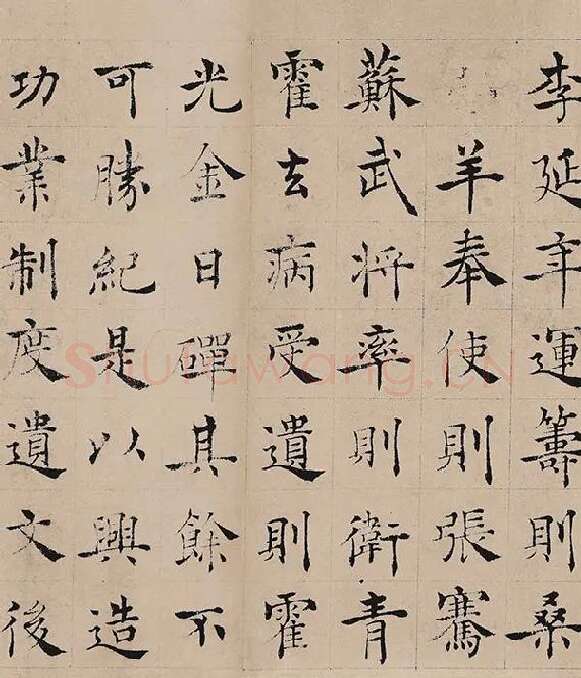 李延年運籌則桑
羊奉使則張騫
蘇武將率則衛青
霍去病受遺則霍
光金日磾其餘不
可勝紀是以興造
功業制度遺文後
Shufawang.CN